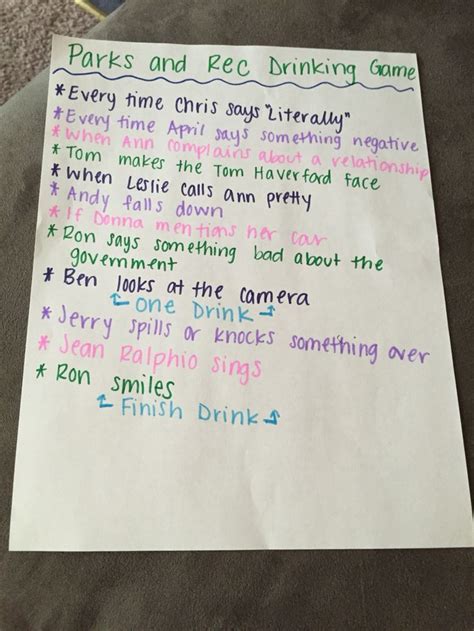 Parks and Rec Drinking Game
* Every time Chris says "Literally"
* Every time April says something negative
* When Ann complains about a relationship
* Tom makes the Tom Haverford face
* When Leslie calls ann pretty
* Andy falls down
* If Donna mentions her car
* Ron says something bad about the
government
* Ben looks at the camera
One Drink
* Jerry spills or knocks something over
* Jean Ralphio sings
* Ron smiles
Finish Drink